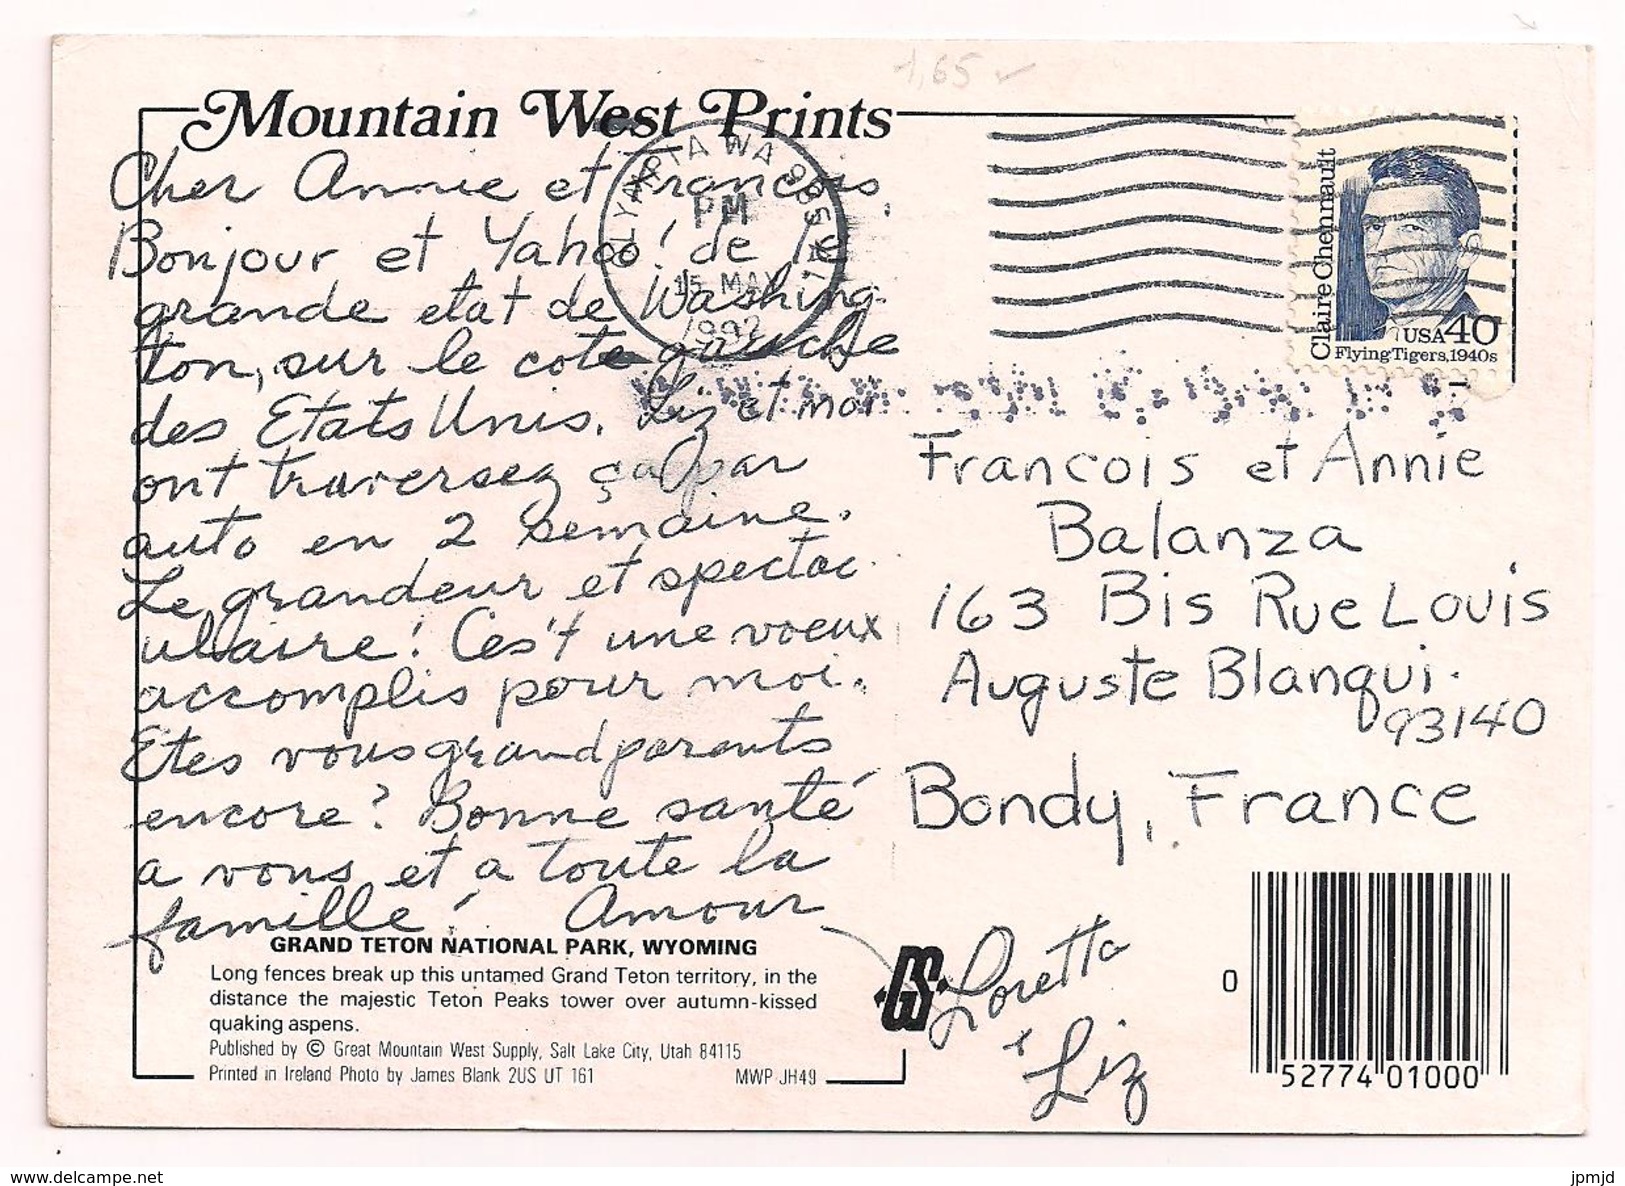 1,65
Mountain West Prints
OLYMPIA WA 985
PM
15 MAY
1992
Claire Chennault
USA 40
Flying Tigers, 1940s
Cher Annie et Francois,
Bonjour et Yahoo! de le
grande etat de Washing-
ton, sur le cote gauche
des Etats Unis. Liz et moi
ont traversez ça par
auto en 2 semaine.
Le grandeur et spectac-
ulaire! Ces't une voeux
accomplis pour moi.
Etes vous grandparents
encore? Bonne santé
a vous et a toute la
famille! Amour
Loretta
+ Liz
Francois et Annie
Balanza
163 Bis Rue Louis
Auguste Blanqui.
93140
Bondy, France
GRAND TETON NATIONAL PARK, WYOMING
Long fences break up this untamed Grand Teton territory, in the
distance the majestic Teton Peaks tower over autumn-kissed
quaking aspens.
Published by © Great Mountain West Supply, Salt Lake City, Utah 84115
Printed in Ireland Photo by James Blank 2US UT 161
MWP JH49
GS
0
52774 01000
www.delcampe.net
jpmjd